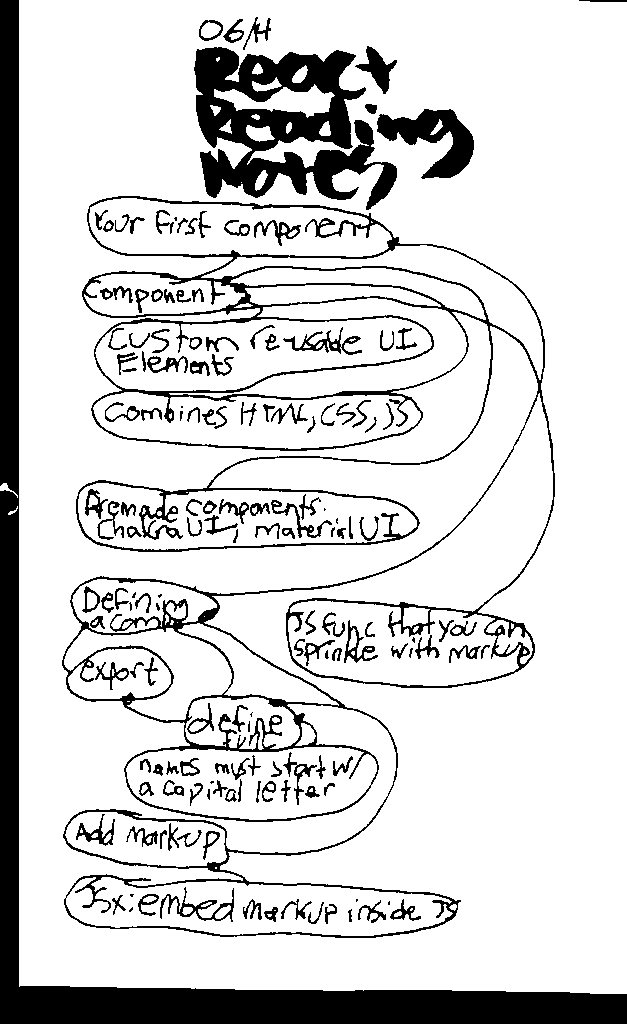 React
Reading
Notes
Your first component
Component
Custom reusable UI
Elements
Combines HTML, CSS, JS
Premade components:
Chakra UI, material UI
Defining
a comp
JS func that you can
sprinkle with markup
export
define
func
names must start w/
a capital letter
Add markup
JSX: embed markup inside JS